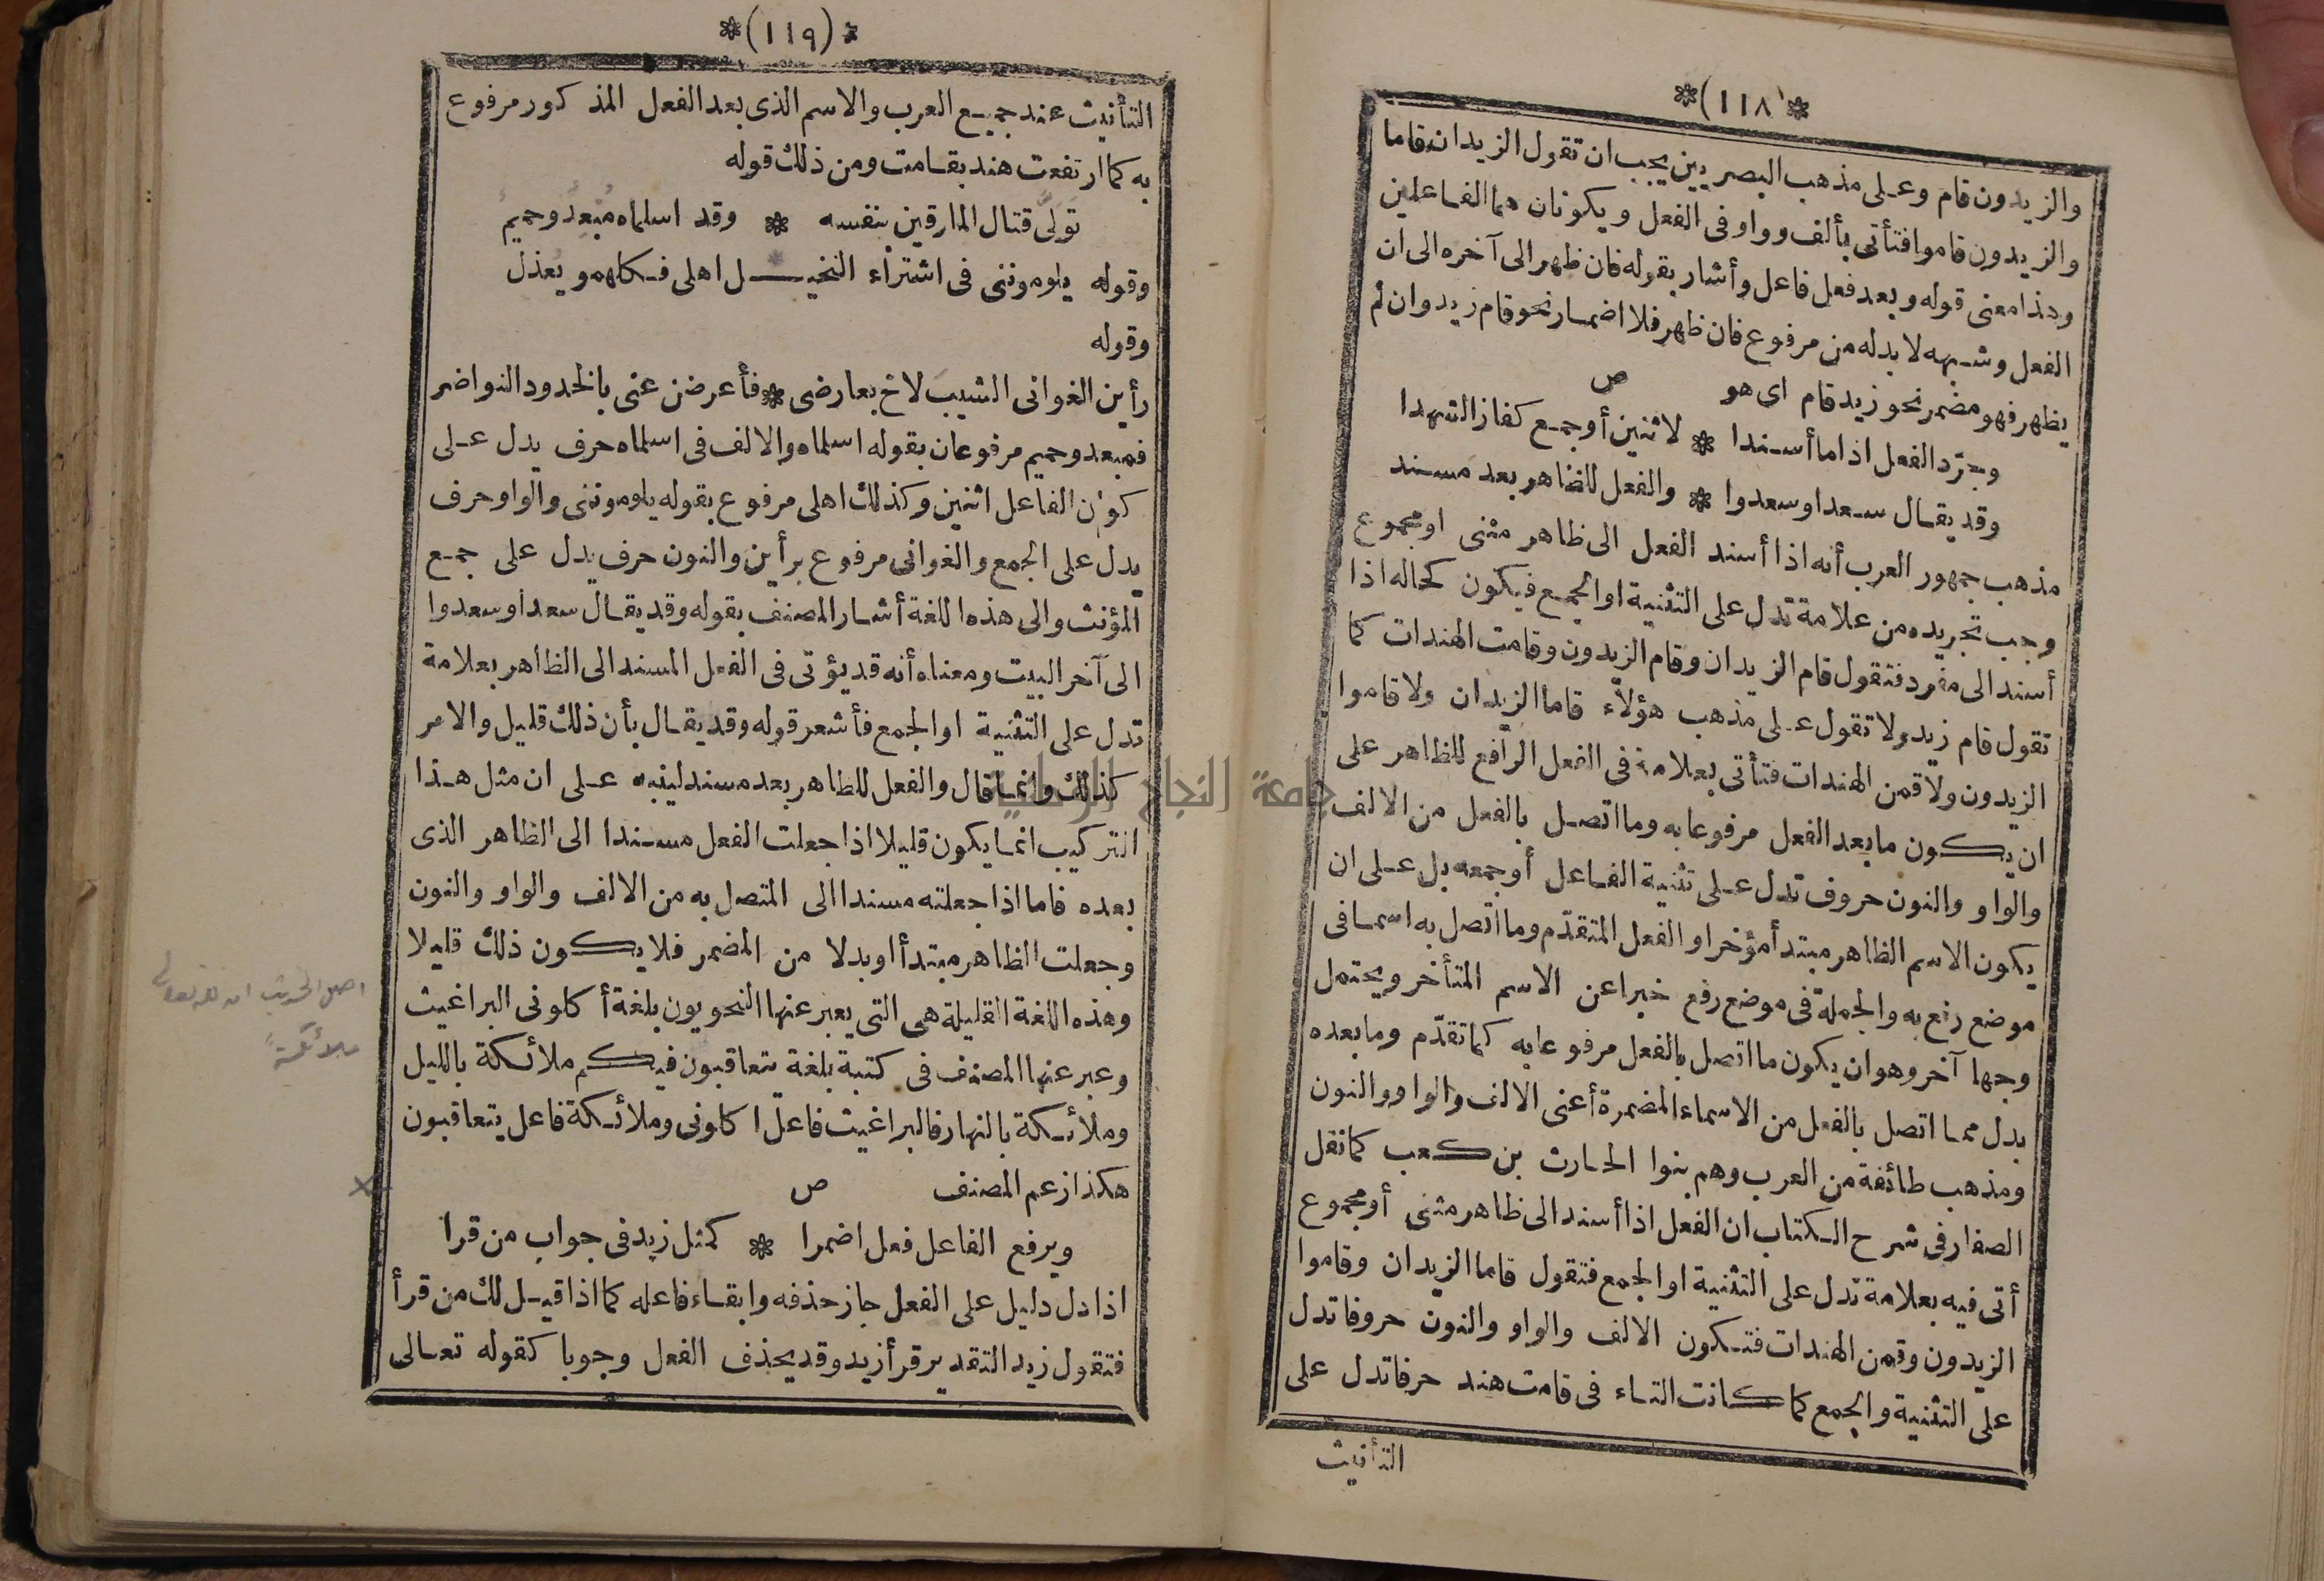 *(١١٨)*
والزيدون قام وعلى مذهب البصريين يجب ان تقول الزيدان قاما
والزيدون قاموا فتأتى بألف وواو فى الفعل ويكونان هما الفاعلين
وهذا معنى قوله وبعد فعل فاعل وأشار بقوله فان ظهر الى آخره الى ان
الفعل وشبهه لا بد له من مرفوع فان ظهر فلا اضمار نحو قام زيد وان لم
يظهر فهو مضمر نحو زيد قام اى هو ص
وجرّد الفعل اذا ما أسندا * لاثنين أو جمع كفاز الشهدا
وقد يقال سعدا وسعدوا * والفعل للظاهر بعد مسند
مذهب جمهور العرب أنه اذا أسند الفعل الى ظاهر مثنى او مجموع
وجب تجريده من علامة تدل على التثنية او الجمع فيكون كحاله اذا
أسند الى مفرد فتقول قام الزيدان وقام الزيدون وقامت الهندات كما
تقول قام زيد ولا تقول على مذهب هؤلاء قاما الزيدان ولا قاموا
الزيدون ولا قمن الهندات فتأتى بعلامة فى الفعل الرافع للظاهر على
ان يكون ما بعد الفعل مرفوعا به وما اتصل بالفعل من الالف
والواو والنون حروف تدل على تثنية الفاعل أو جمعه بل على ان
يكون الاسم الظاهر مبتدأ مؤخرا والفعل المتقدّم وما اتصل به اسما فى
موضع رفع به والجملة فى موضع رفع خبرا عن الاسم المتأخر ويحتمل
وجها آخر وهو ان يكون ما اتصل بالفعل مرفوعا به كما تقدّم وما بعده
بدل مما اتصل بالفعل من الاسماء المضمرة أعنى الالف والواو والنون
ومذهب طائفة من العرب وهم بنوا الحارث بن كعب كما نقل
الصفار فى شرح الكتاب ان الفعل اذا أسند الى ظاهر مثنى أو مجموع
أتى فيه بعلامة تدل على التثنية او الجمع فتقول قاما الزيدان وقاموا
الزيدون وقمن الهندات فتكون الالف والواو والنون حروفا تدل
على التثنية والجمع كما كانت التاء فى قامت هند حرفا تدل على
التأنيث
*(١١٩)*
التأنيث عند جميع العرب والاسم الذى بعد الفعل المذكور مرفوع
به كما ارتفعت هند بقامت ومن ذلك قوله
تولى قتال المارقين بنفسه * وقد اسلماه مبعد وحميم
وقوله يلوموننى فى اشتراء النخيل اهلى فكلهمو يعذل
وقوله
رأين الغوانى الشيب لاح بعارضى * فأعرضن عنى بالخدود النواضر
فمبعد وحميم مرفوعان بقوله اسلماه والالف فى اسلماه حرف يدل على
كون الفاعل اثنين وكذلك اهلى مرفوع بقوله يلوموننى والواو حرف
يدل على الجمع والغوانى مرفوع برأين والنون حرف يدل على جمع
المؤنث والى هذه اللغة أشار المصنف بقوله وقد يقال سعدا وسعدوا
الى آخر البيت ومعناه أنه قد يؤتى فى الفعل المسند الى الظاهر بعلامة
تدل على التثنية او الجمع فأشعر قوله وقد يقال بأن ذلك قليل والامر
كذلك وانما قال والفعل للظاهر بعد مسند لينبه على ان مثل هذا
التركيب انما يكون قليلا اذا جعلت الفعل مسندا الى الظاهر الذى
بعده فاما اذا جعلته مسندا الى المتصل به من الالف والواو والنون
وجعلت الظاهر مبتدأ او بدلا من المضمر فلا يكون ذلك قليلا
وهذه اللغة القليلة هى التى يعبر عنها النحويون بلغة أكلونى البراغيث
وعبر عنها المصنف فى كتبة بلغة يتعاقبون فيكم ملائكة بالليل
وملائكة بالنهار فالبراغيث فاعل اكلونى وملائكة فاعل يتعاقبون
هكذا زعم المصنف ص
ويرفع الفاعل فعل اضمرا * كمثل زيد فى جواب من قرا
اذا دل دليل على الفعل جاز حذفه وابقاء فاعله كما اذا قيل لك من قرأ
فتقول زيد التقدير قرأ زيد وقد يحذف الفعل وجوبا كقوله تعالى
اصل الحديث ان لله تعالى
ملائكةً
جامعة النجاح الوطنية